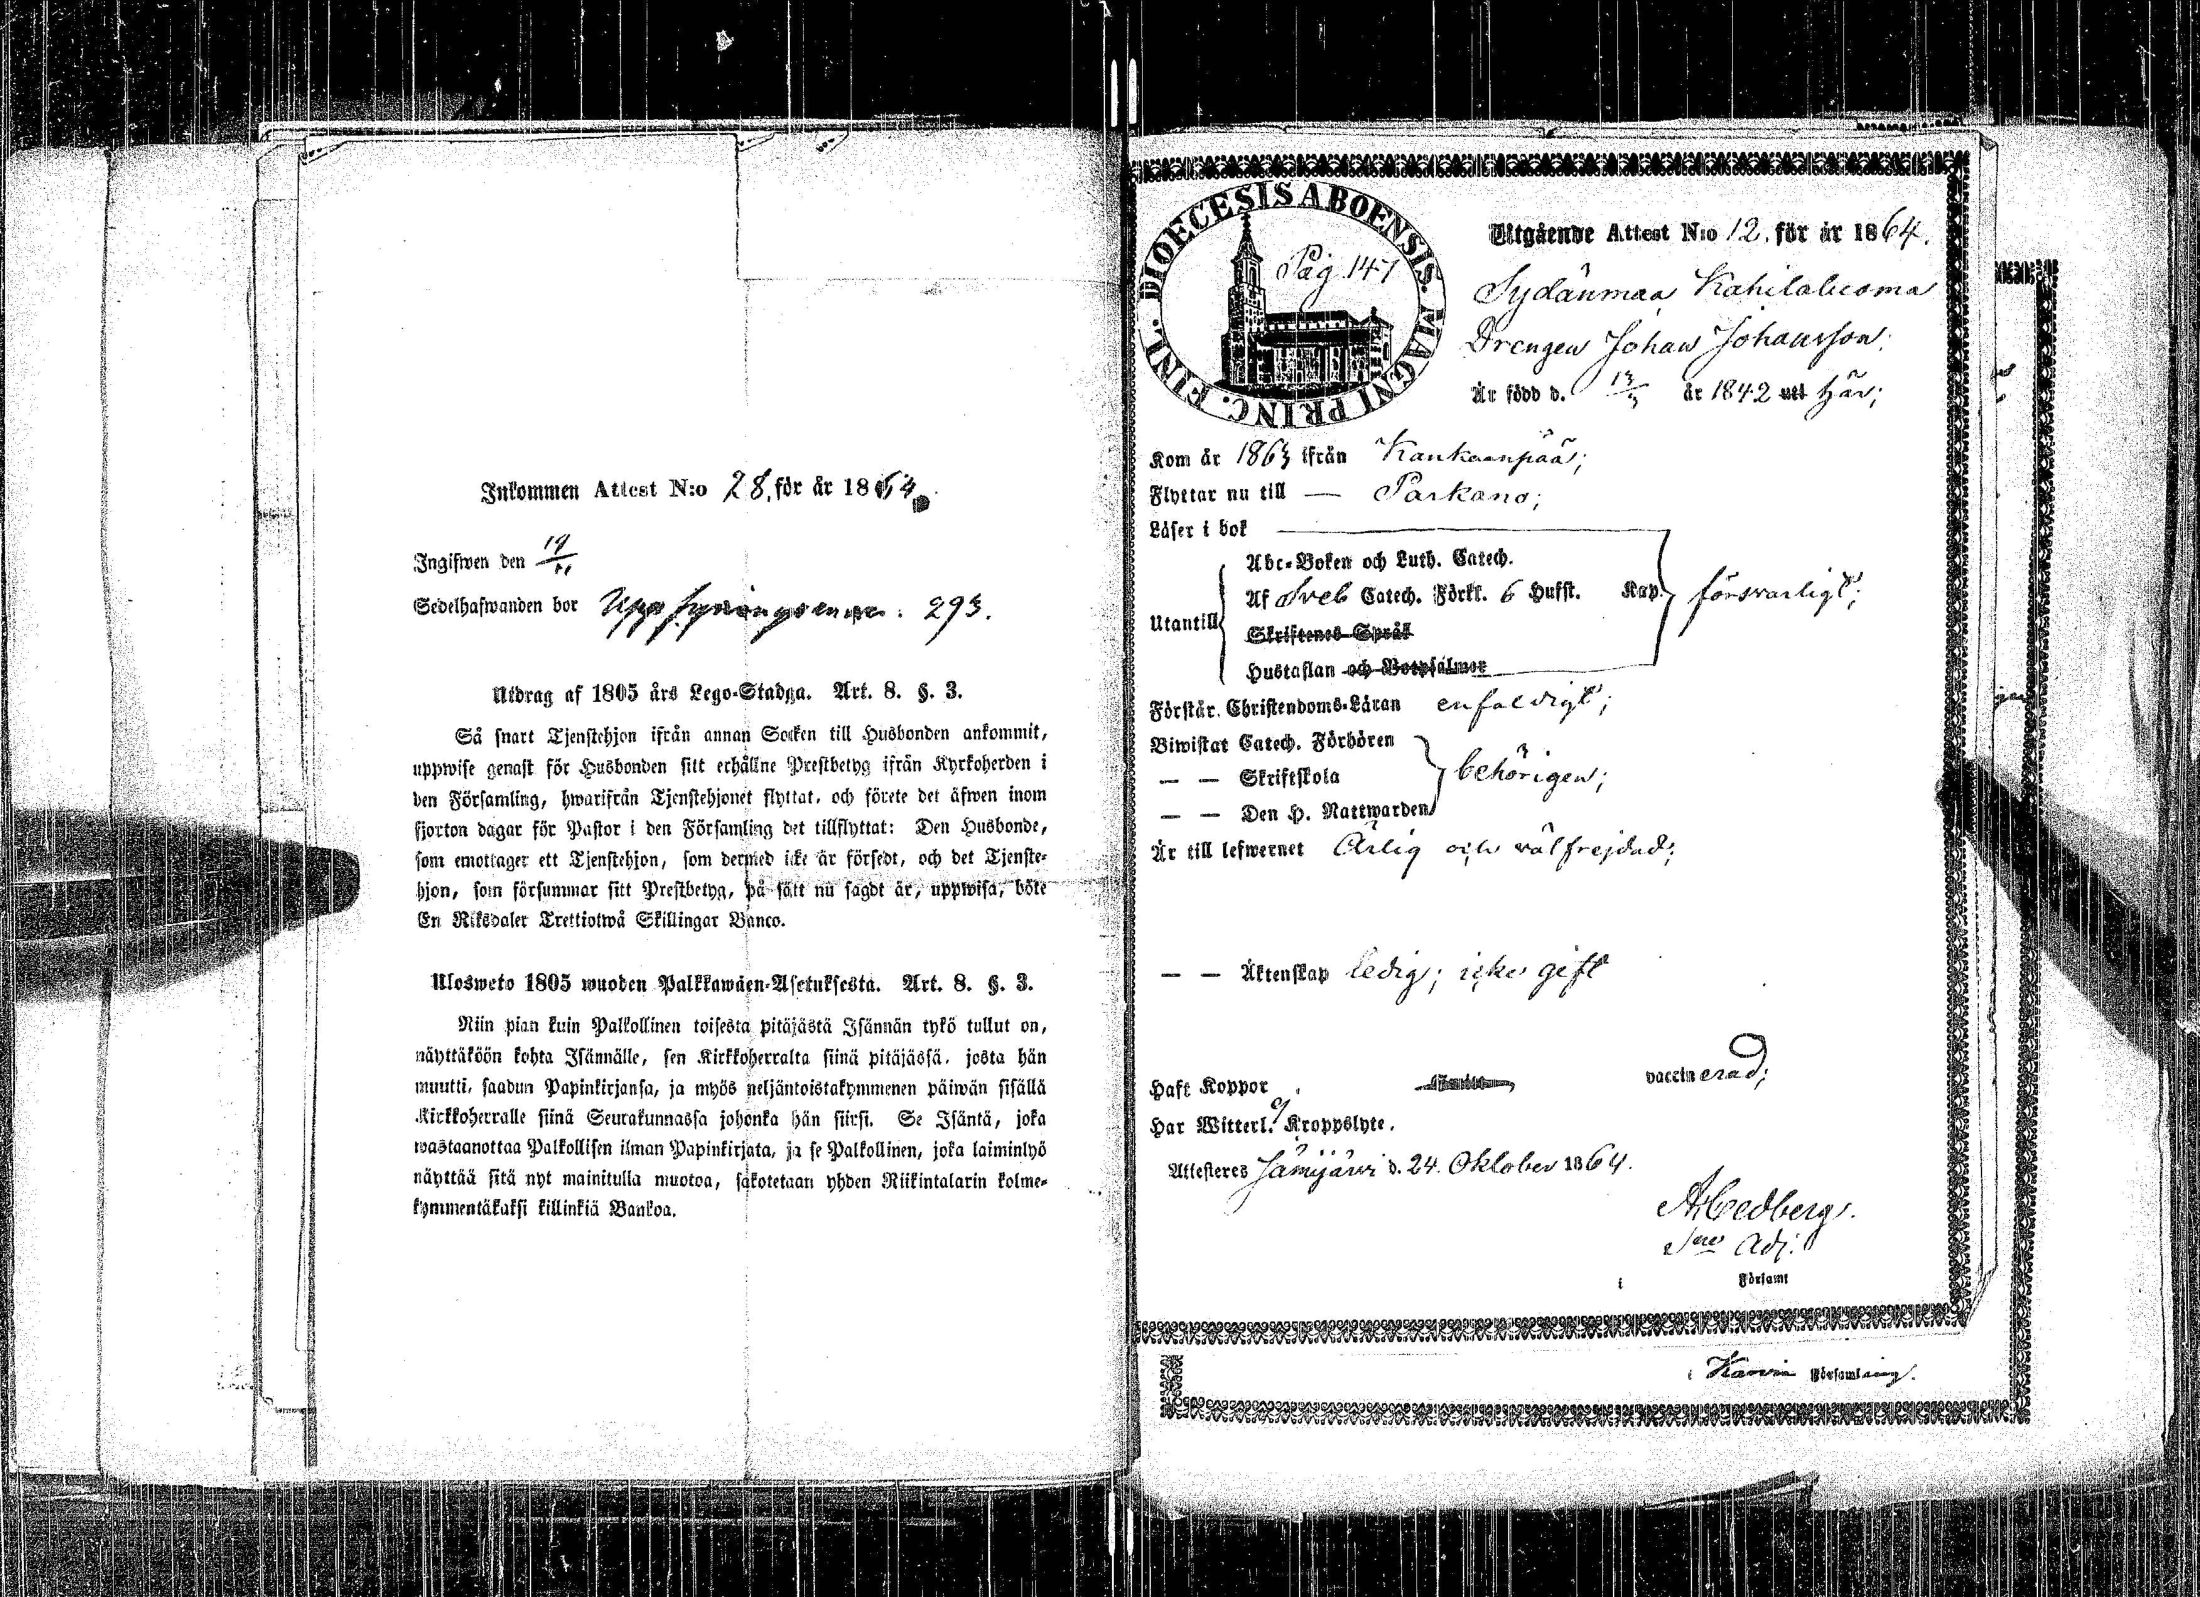 Inkommen Attest N:o 28, för år 1864.
Ingifwen den 19/11
Sedelhafwanden bor 293.
Utdrag af 1805 års Lego-Stadga. Art. 8. §. 3.
Så snart Tjenstehjon ifrån annan Socken till Husbonden ankommit,
uppwise genast för Husbonden sitt erhållne Prestbetyg ifrån Kyrkoherden i
den Församling, hwarifrån Tjenstehjonet flyttat, och förete det äfwen inom
fjorton dagar för Pastor i den Församling det tillflyttat: Den Husbonde,
som emottager ett Tjenstehjon, som dermed icke är försedt, och det Tjenste-
hjon, som försummar sitt Prestbetyg, på sätt nu sagdt är, uppwisa, böte
En Riksdaler Trettiotwå Skillingar Banco.
Ulosweto 1805 wuoden Palkkawäen-Asetuksesta. Art. 8. §. 3.
Niin pian kuin Palkollinen toisesta pitäjästä Isännän tykö tullut on,
näyttäköön kohta Isännälle, sen Kirkkoherralta siinä pitäjässä, josta hän
muutti, saadun Papinkirjansa, ja myös neljäntoistakymmenen päiwän sisällä
Kirkkoherralle siinä Seurakunnassa johonka hän siirsi. Se Isäntä, joka
wastaanottaa Palkollisen ilman Papinkirjata, ja se Palkollinen, joka laiminlyö
näyttää sitä nyt mainitulla muotoa, sakotetaan yhden Riikintalarin kolme-
kymmentäkaksi killinkiä Bankoa.
DIOECESIS ABOENSIS. MAGNI PRINC. FINL.
Pag 147
Utgående Attest N:o 12. för år 1864.
Sydänmaa Kahilaluoma
Drengen Johan Johansson;
Är född d. 13/3 år 1842 uti här;
Kom år 1863 ifrån Kankaanpää;
Flyttar nu till — Parkano;
Läser i bok
Abc-Boken och Luth. Catech.
Af Sveb Catech. Förkl. 6 Hufst. Kap. försvarligt;
Utantill
Skriftenes Språk
Hustaflan och Botpsalmer
Förstår Christendoms-Läran enfaldigt;
Biwistat Catech. Förhören
— — Skriftskola behörigen;
— — Den H. Nattwarden
Är till lefwernet Ärlig och välfrejdad;
— — Äktenskap ledig; icke gift
Haft Koppor vaccinerad;
Har Witterl. ej Kroppslyte.
Attesteres Jämijärvi d. 24. Oktober 1864.
Adj.
i Församl
i Karvia Församling.